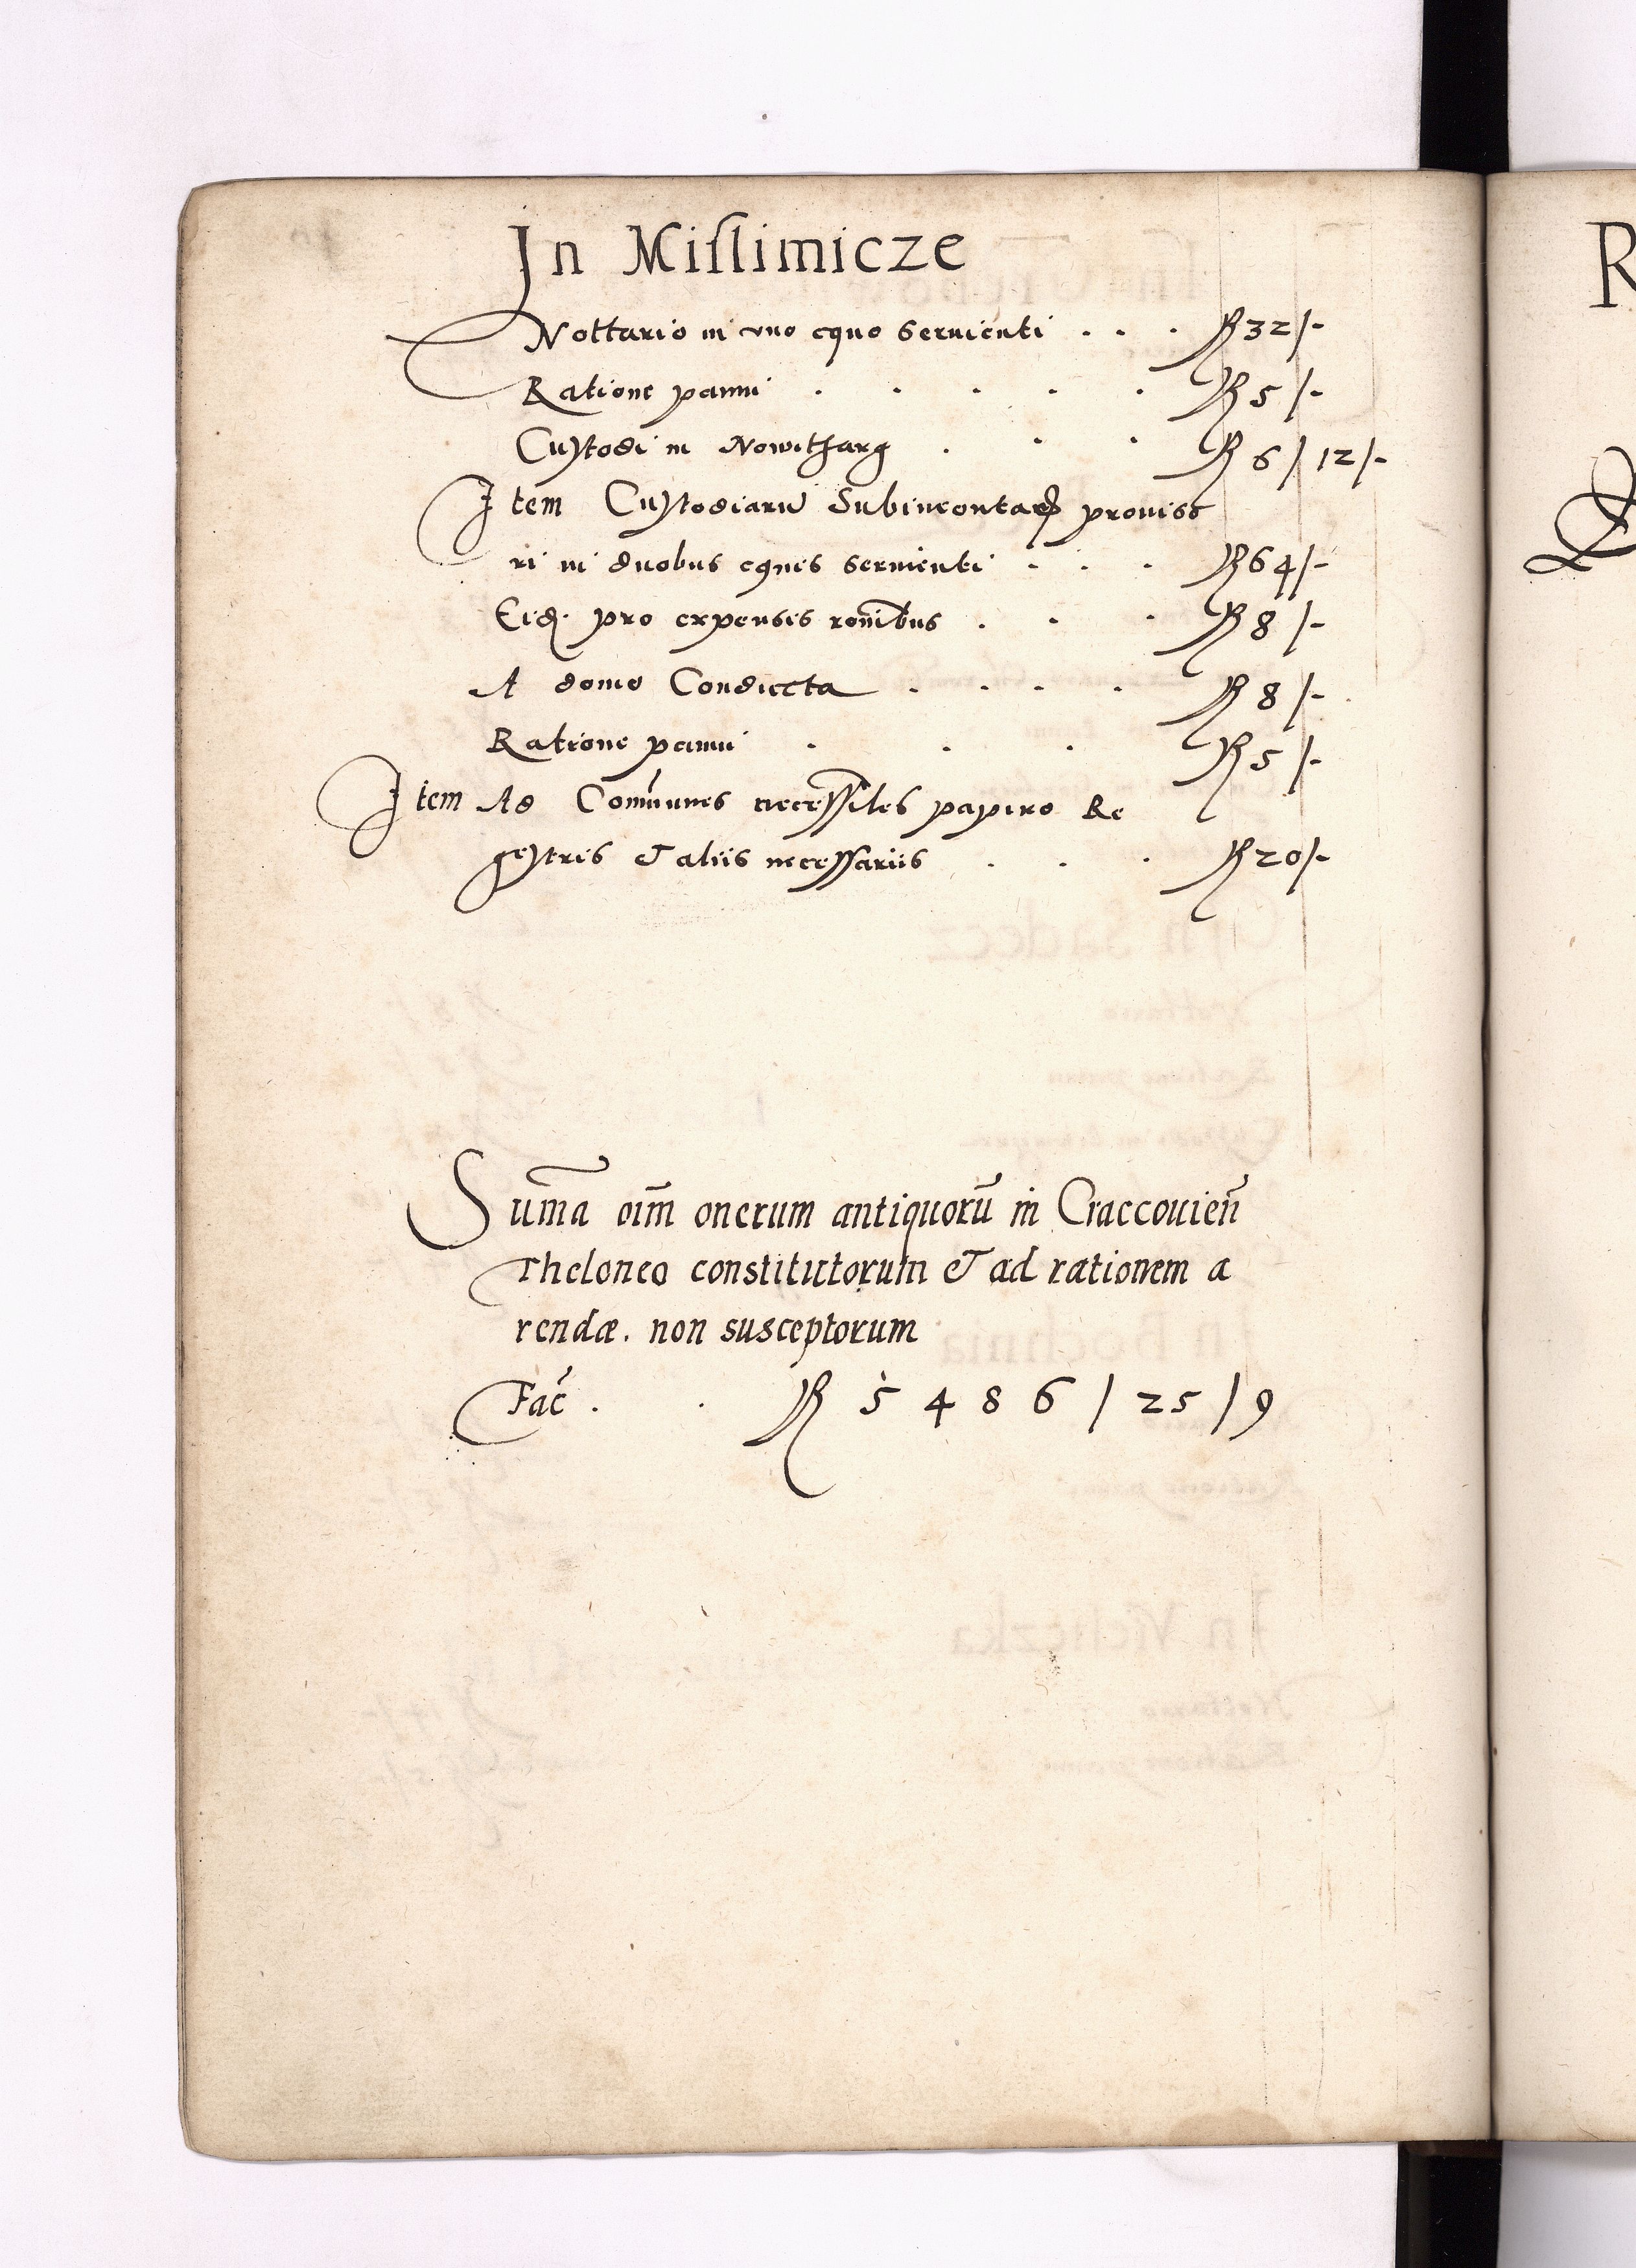 In Misslimicze
Nottario in vno equo seruienti . . . R 32/-
Ratione panni . . . . . R 5/-
Custodi in Nowitharg . . . R 6/12/-
Item Custodiarū Subincontaꝝ provisso
ri in duobus equis seruienti . . . R 64/-
Eid. pro expensis ronibus . . . R 8/-
A domo Conducta . . . . R 8/-
Ratione panni . . . R 5/-
Item Ad Comunes necessites papiro Re
gestris & aliis necessariis . . . R 20/-
Suma oim onerum antiquorū in Craccouien̄
Theloneo constitutorum & ad rationem a
rendæ. non susceptorum
Fac . . R 5486/25/9
R